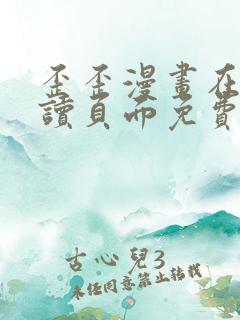 歪歪漫畫在
讀頁面免費
古心兒3
未经同意禁止转载